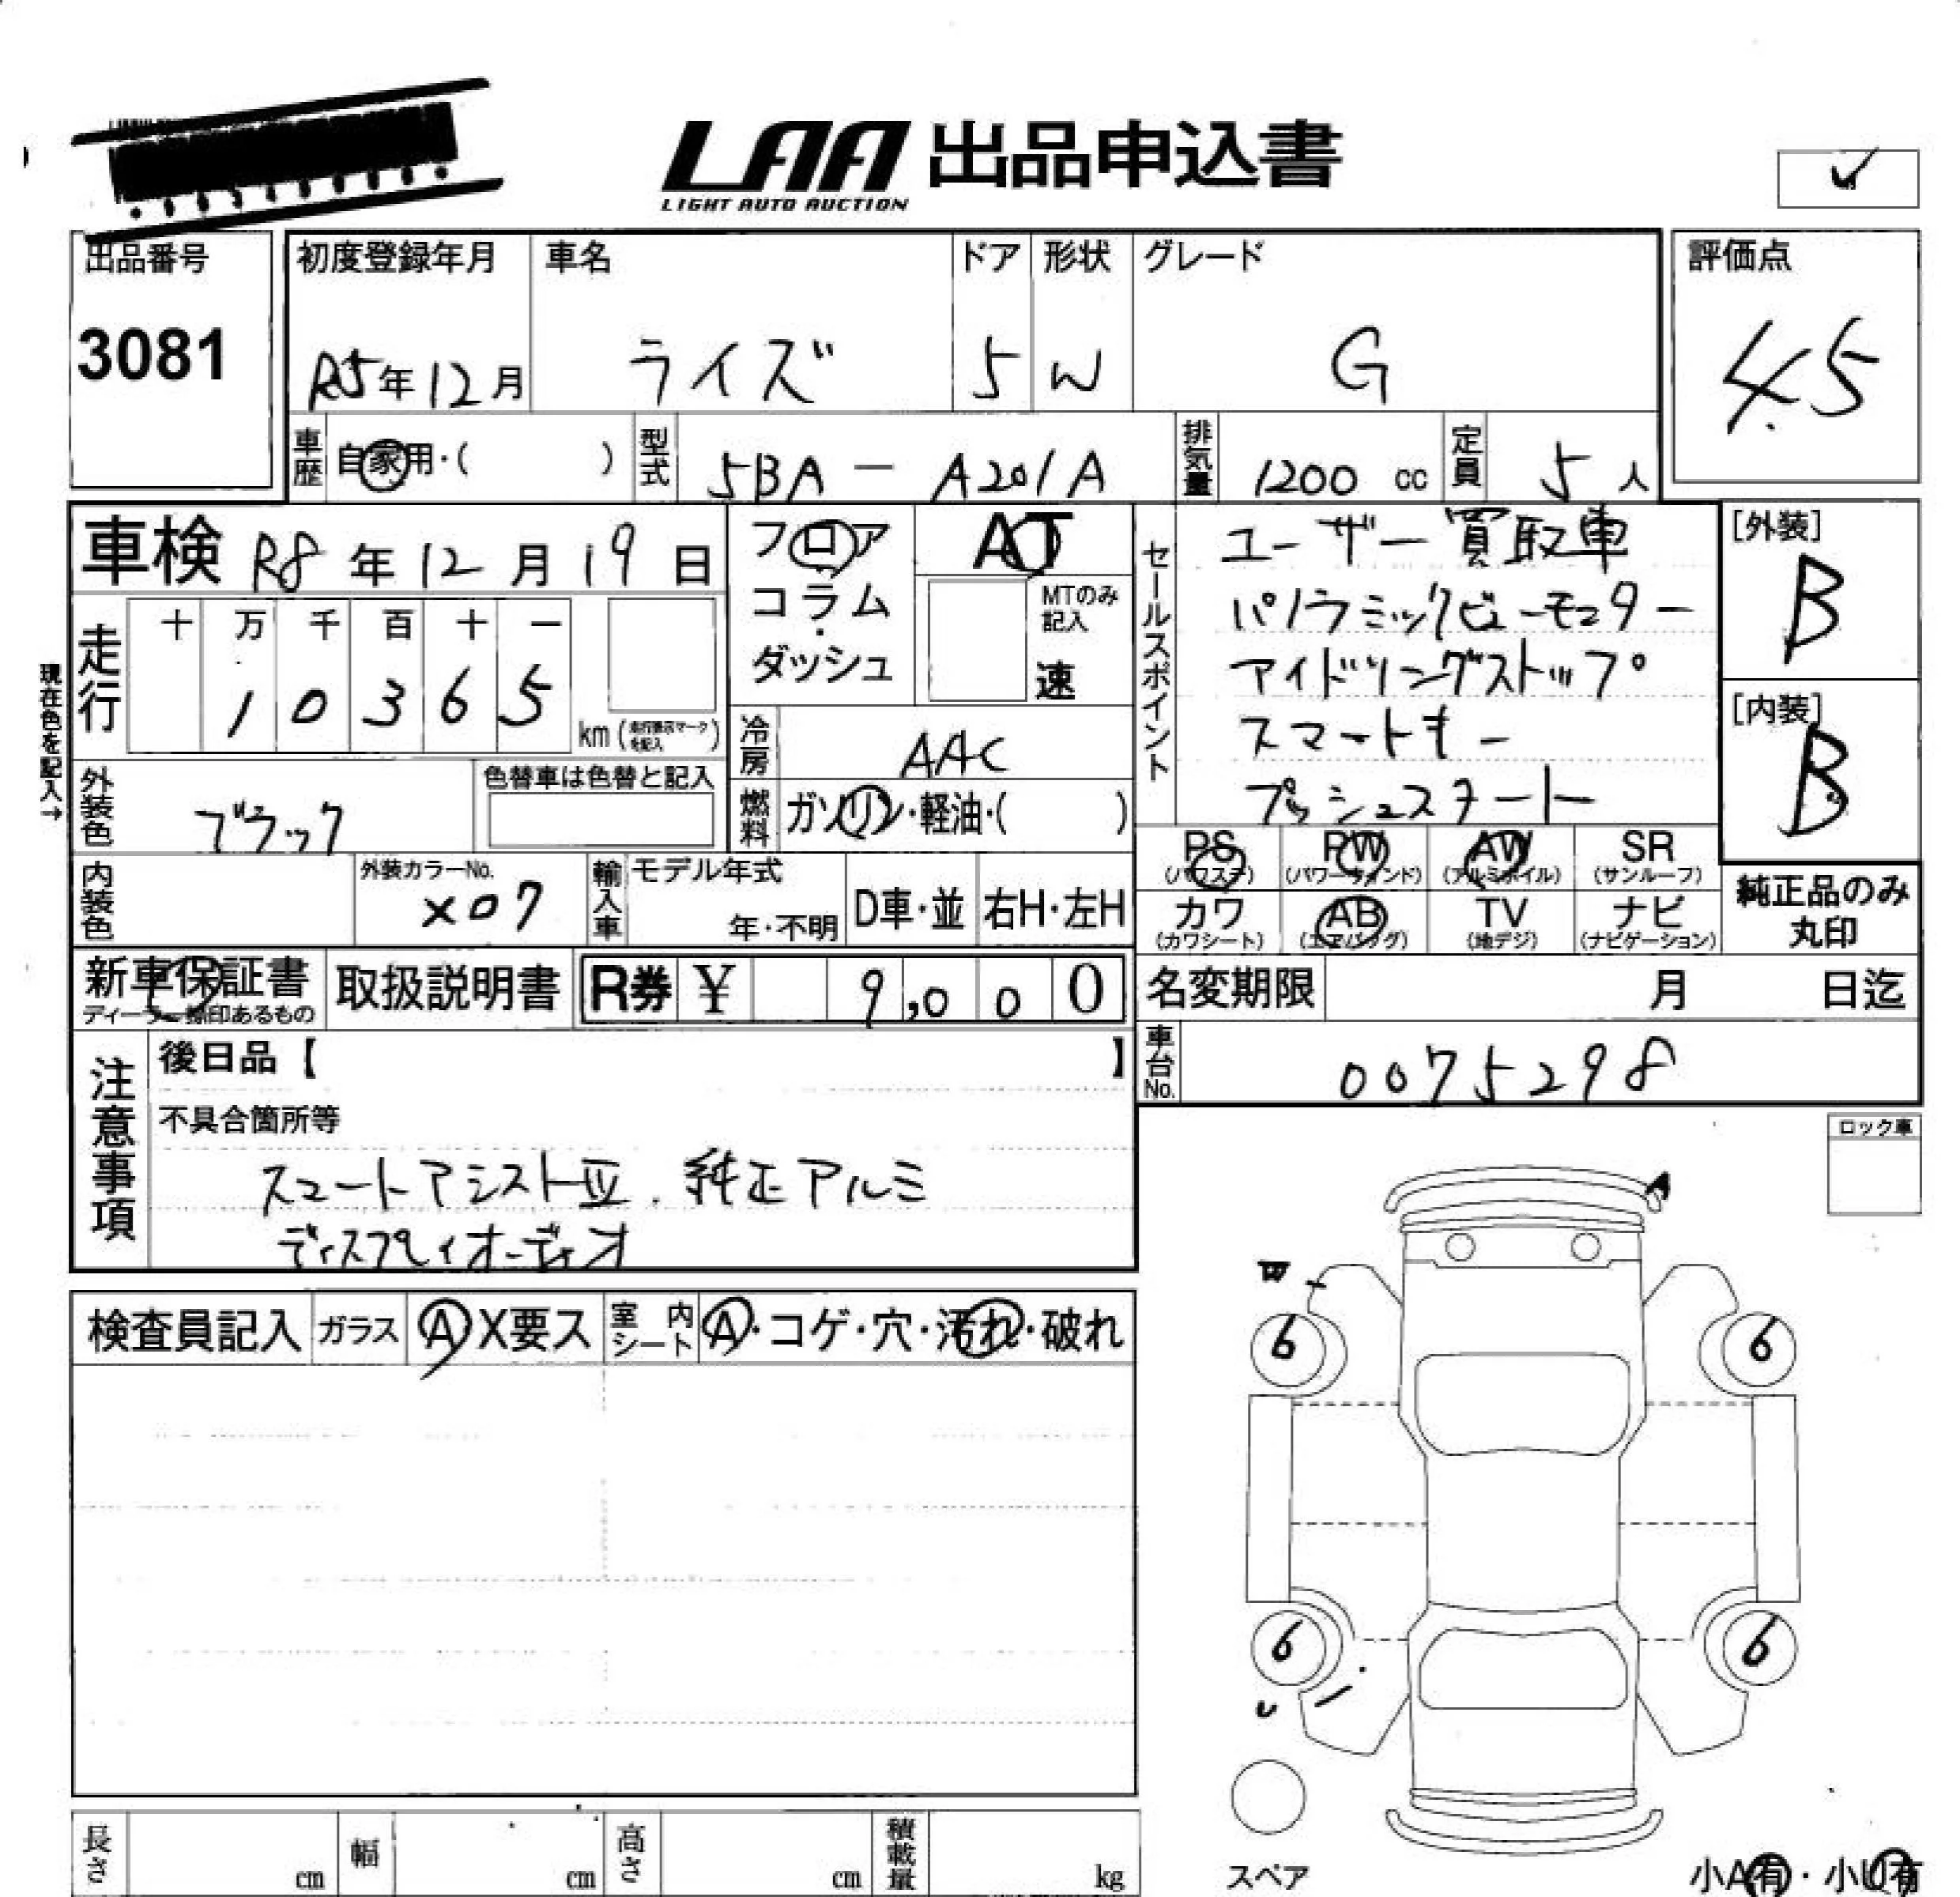 LAA 出品申込書
LIGHT AUTO AUCTION
出品番号
3081
初度登録年月
R5年12月
車名
ライズ
ドア
5
形状
W
グレード
G
評価点
4.5
車歴
自家用・( )
型式
5BA - A201A
排気量
1200 cc
定員
5人
車検 R8年12月19日
走行
十 万 千 百 十 一
1 0 3 6 5
km(走行表示マークを記入)
現在色を記入→
外装色
ブラック
色替車は色替と記入
内装色
外装カラーNo.
X07
フロア
コラム
・
ダッシュ
AT
MTのみ記入
速
冷房
AAC
燃料
ガソリン・軽油・( )
輸入車
モデル年式
年・不明
D車・並
右H・左H
セールスポイント
ユーザー買取車
パノラミックビューモニター
アイドリングストップ
スマートキー
プッシュスタート
[外装]
B
[内装]
B
PS
(パワステ)
PW
(パワーウィンド)
AW
(アルミホイル)
SR
(サンルーフ)
カワ
(カワシート)
AB
(エアバッグ)
TV
(地デジ)
ナビ
(ナビゲーション)
純正品のみ
丸印
新車保証書
ディーラー捺印あるもの
取扱説明書
R券 ¥ 9,000
名変期限 月 日迄
車台No.
0075298
注意事項
後日品【 】
不具合箇所等
スマートアシストⅢ. 純正アルミ
ディスプレイオーディオ
ロック車
検査員記入
ガラス
A X要ス
室内シート
A・コゲ・穴・汚れ・破れ
A
W
6
6
6
6
U
スペア
小A有・小U有
長さ cm
幅 cm
高さ cm
積載量 kg